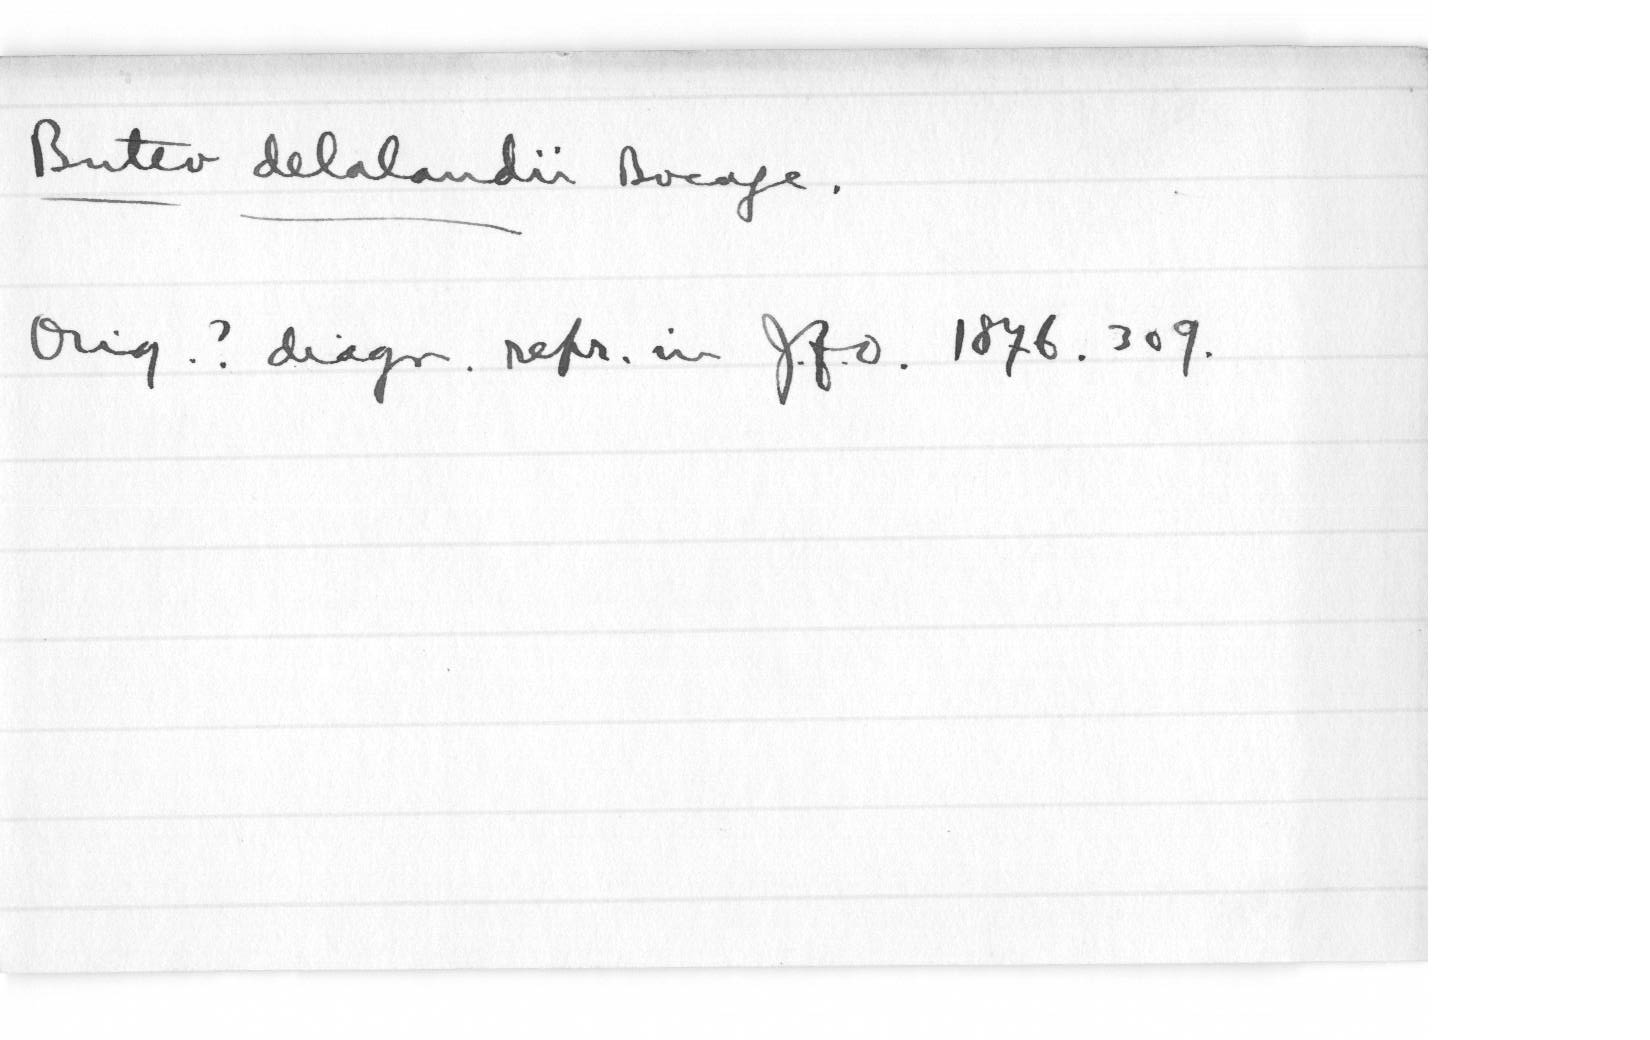 Buteo delalandii Bocage.
Orig.? diagn. repr. in J.f.O. 1876. 309.